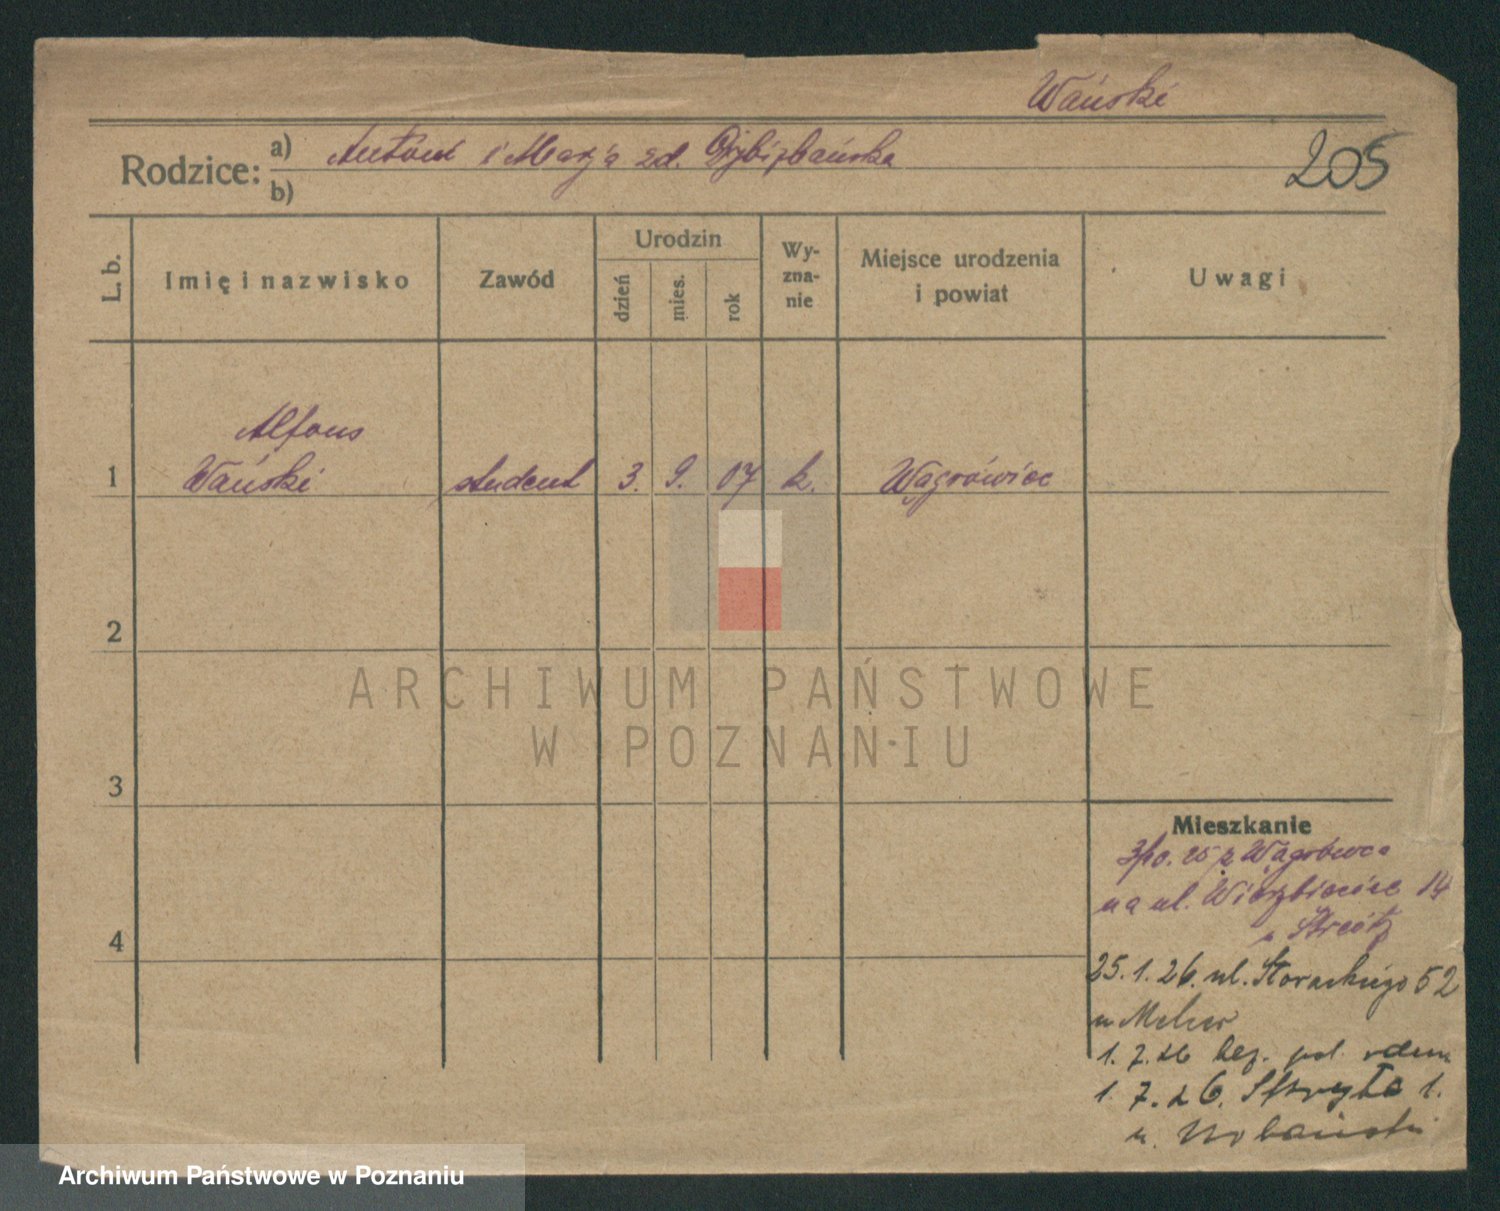 Wański
Rodzice: a) Antoni i Marja zd.
b)
205
L. b.
Imię i nazwisko
Zawód
Urodzin
dzień
mies.
rok
Wy-
zna-
nie
Miejsce urodzenia
i powiat
Uwagi
Alfons
1 Wański student 3. 9. 07 k. Wągrówiec
2
3
4
ARCHIWUM PAŃSTWOWE
W POZNANIU
Mieszkanie
3/10. 25 z Wągrówca
na ul. Wierzbięcice 14
25.1.26. ul. 52
u
1.7.26
1.7.26. 1.
u.
Archiwum Państwowe w Poznaniu